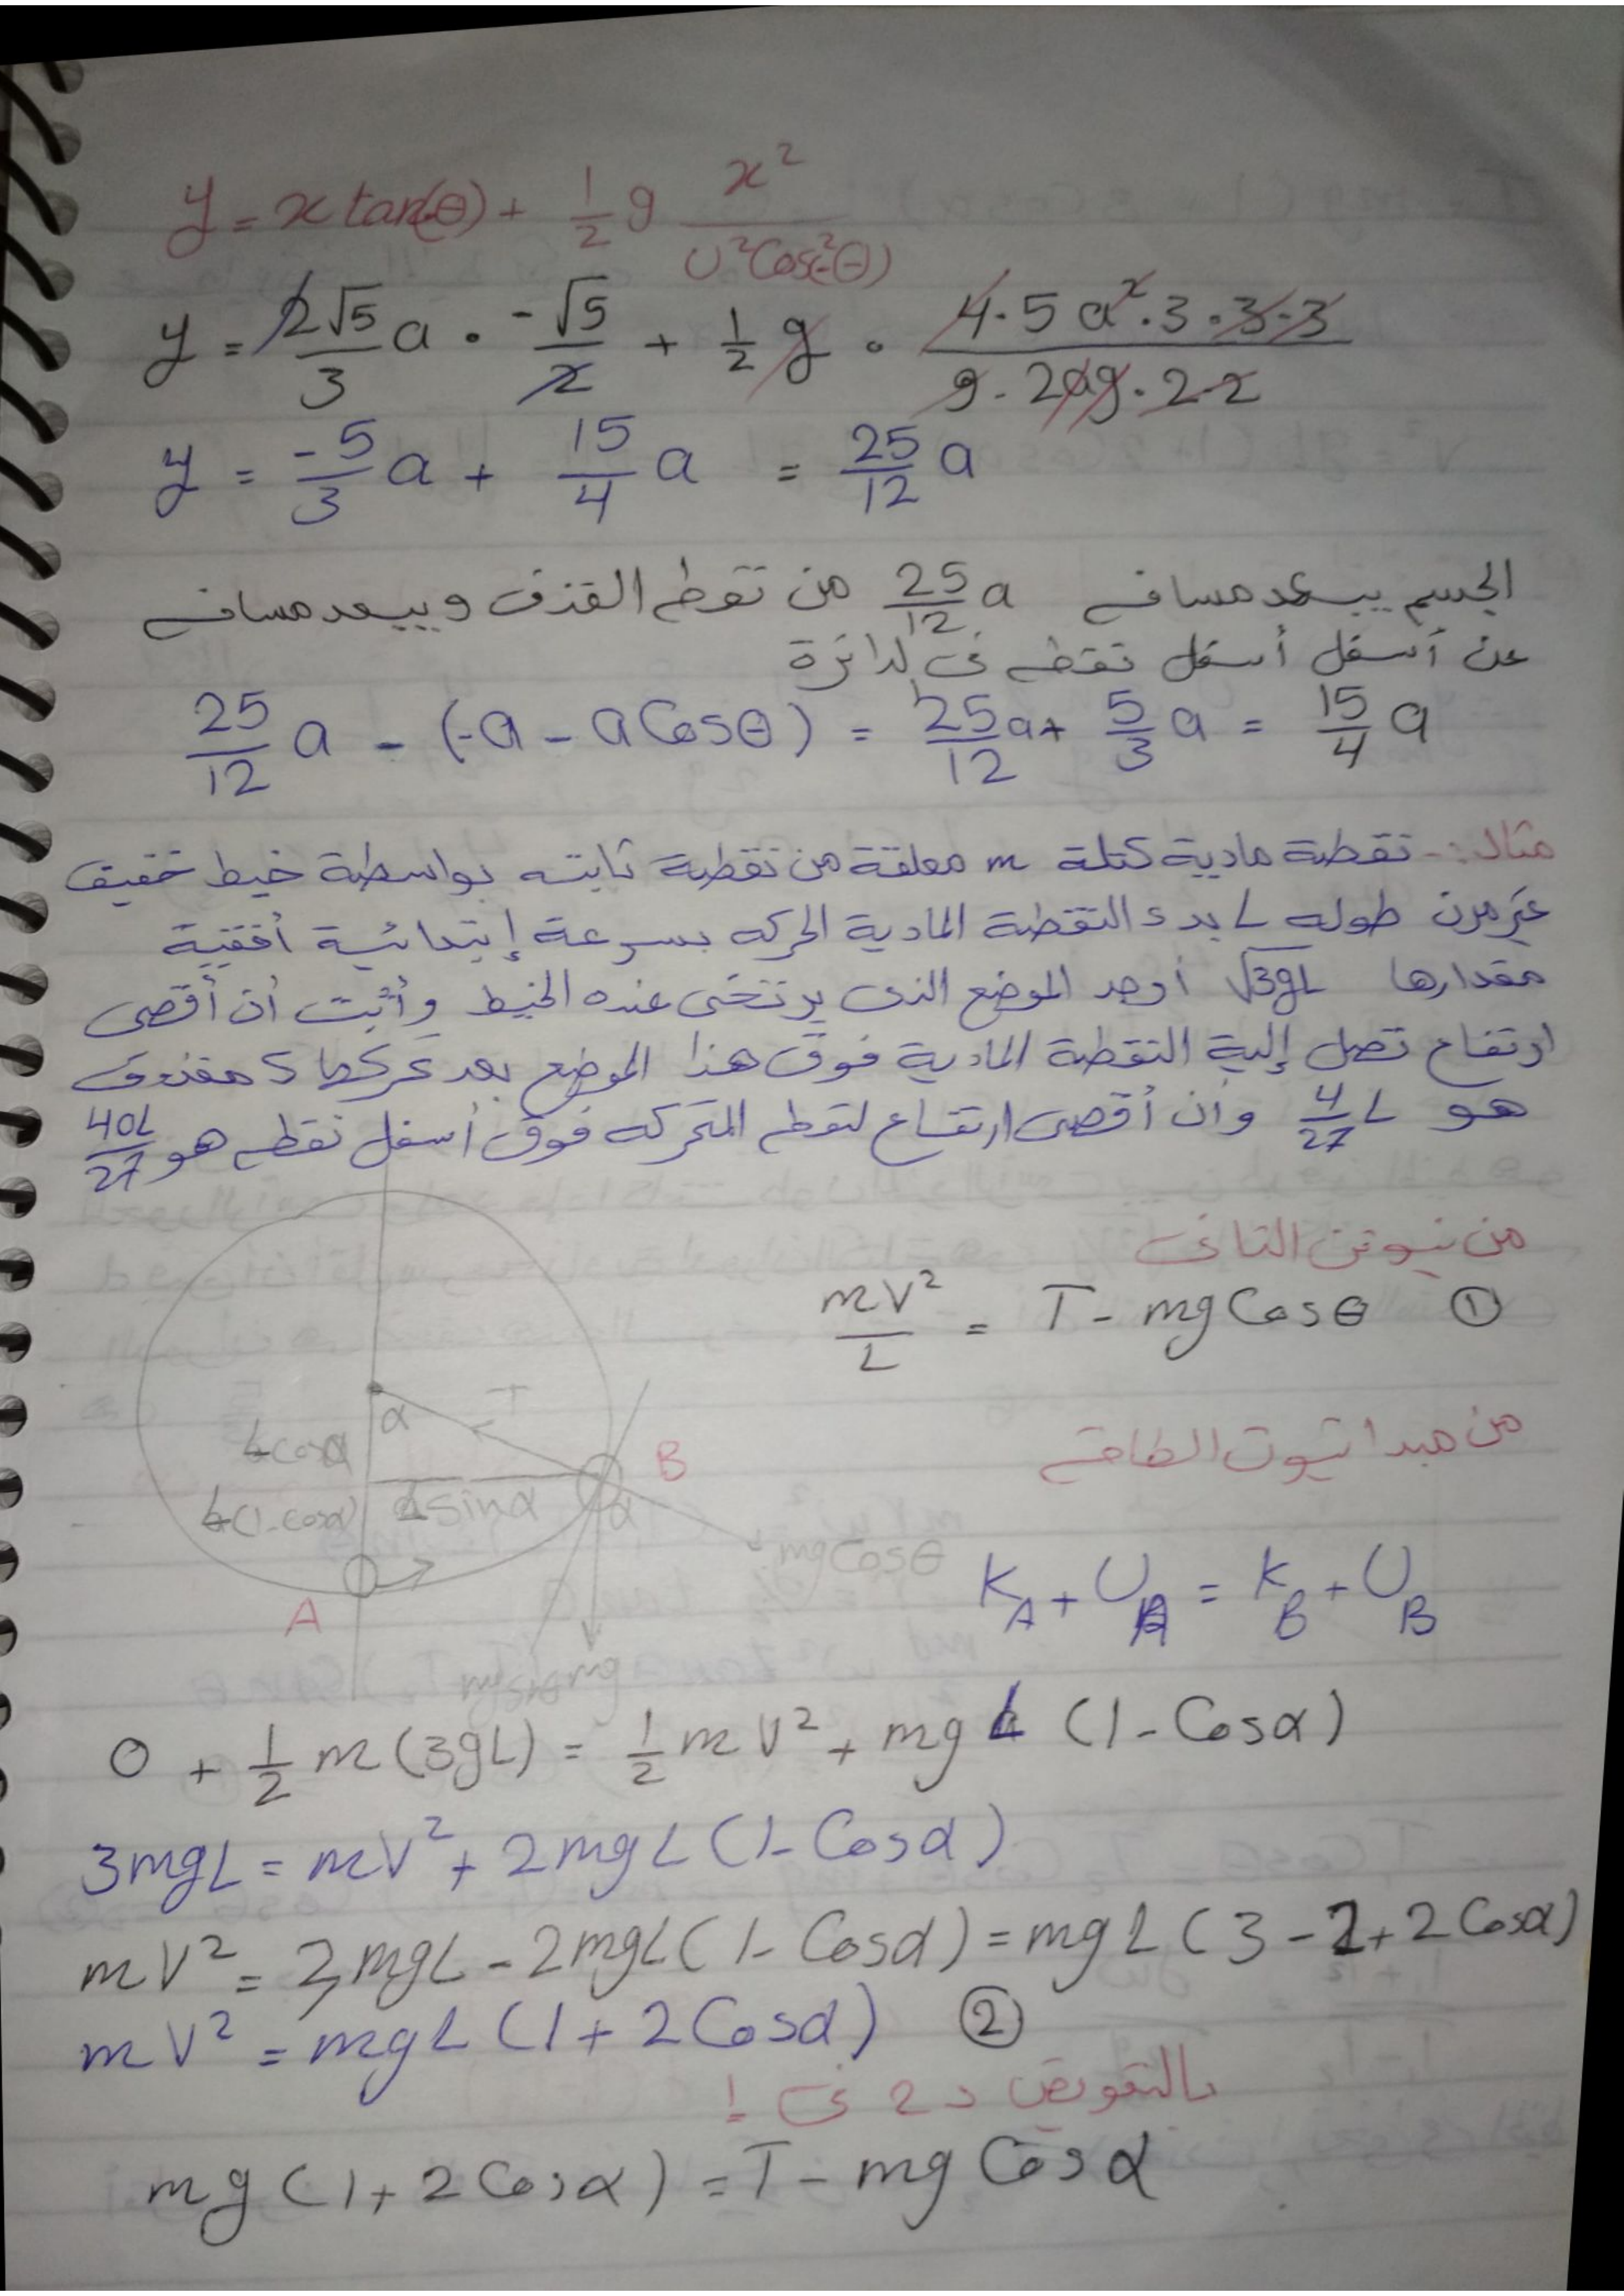 y = x tan(-θ) + 1/2 g x²/(U²Cos²(-θ))
y = 2√5/3 a · -√5/2 + 1/2 g · (4·5a²·3·3·3)/(9·2ag·2·2)
y = -5/3 a + 15/4 a = 25/12 a
الجسم يبعد مسافه 25/12 a من نقطه القذف ويبعد مسافه
عن أسفل أسفل نقطه فى لدائرة
25/12 a - (-a - aCosθ) = 25/12 a + 5/3 a = 15/4 a
مثال:- نقطة مادية كتلة m معلقة من نقطة ثابته بواسطة خيط خفيف
غير مرن طوله L بدء النقطة المادية الحركه بسرعة إبتدائية أفقية
مقدارها √3gL أوجد الموضع الذى يرتخى عنده الخيط وأثبت أن أقصى
ارتفاع تصل إلية النقطة المادية فوق هذا الموضع بعد تحركها ك مقذوف
هو 4/27 L وأن أقصى ارتفاع لنقطه المتحركه فوق أسفل نقطه هو 40L/27
من نيوتن الثانى
mV²/L = T - mg Cosθ ①
T
α
Lcosα
B
L(1-cosα)
L sinα
α
mgCosθ
A
mg sinθ
mg
من مبدا ثبوت الطاقه
K_A + U_A = K_B + U_B
0 + 1/2 m(3gL) = 1/2 mV² + mgL (1-Cosα)
3mgL = mV² + 2mgL(1-Cosα)
mV² = 3mgL - 2mgL(1-Cosα) = mgL(3-2+2Cosα)
mV² = mgL(1+2Cosα) ②
بالتعويض د 2 فى 1
mg(1+2Cosα) = T - mg Cosα